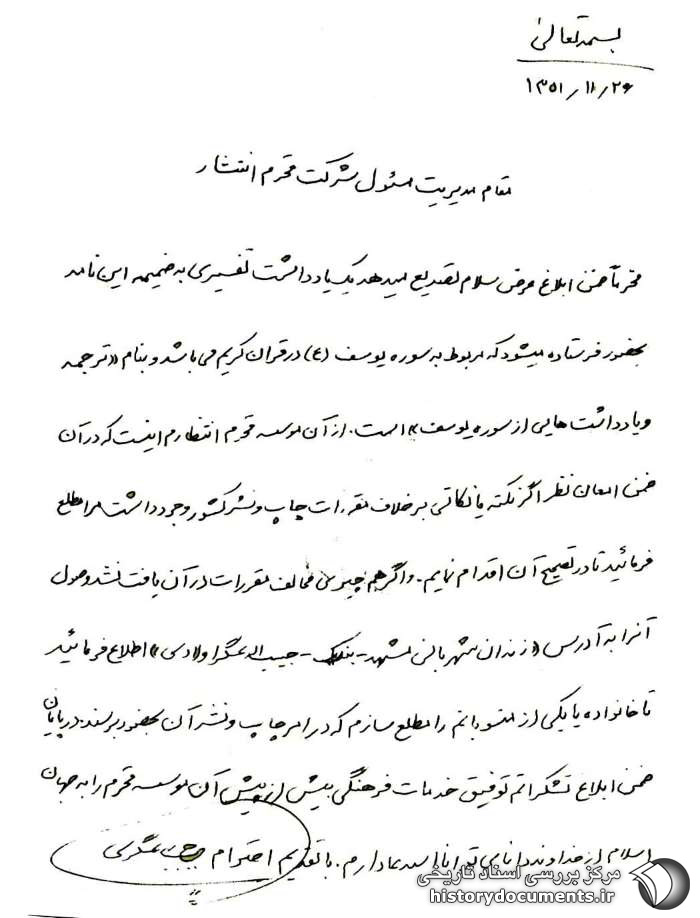 بسمه تعالی
۱۳۵۱/۱۱/۲۶
مقام مدیریت مسئول شرکت محترم انتشار
محترماً ضمن ابلاغ عرض سلام تصدیع میدهد یک یادداشت تفسیری به ضمیمه این نامه
بحضور فرستاده میشود که مربوط به سوره یوسف (ع) در قران کریم می باشد و بنام «ترجمه
و یادداشت هایی از سوره یوسف» است. از آن موسسه محترم انتظارم اینست که در آن
ضمن امعان نظر اگر نکته یا نکاتی بر خلاف مقررات چاپ و نشر کشور وجود داشت مرا مطلع
فرمائید تا در تصحیح آن اقدام نمایم. و اگر هم چیزی مخالف مقررات در آن یافت نشد وصول
آنرا به آدرس «زندان شهربانی مشهد - بند - حبیب اله عسگراولادی» اطلاع فرمائید
تا خانواده یا یکی از منسوبانم را مطلع سازم که در امر چاپ و نشر آن بحضور برسند. در پایان
ضمن ابلاغ تشکراتم توفیق خدمات فرهنگی بیش از پیش آن موسسه محترم را به جهان
اسلام از خداوند دانای توانا استدعا دارم. با تقدیم احترام عسگری
مرکز بررسی اسناد تاریخی
historydocuments.ir